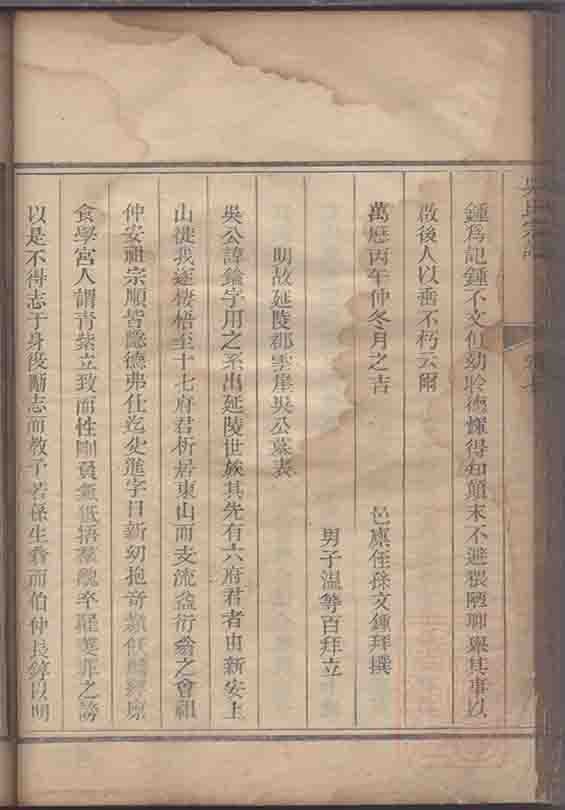 吳氏宗譜
鍾爲記鍾不文但幼聆德煇得知顛末不避猥陋聊舉其事以
啟後人以垂不朽云爾
萬曆丙午仲冬月之吉
邑廩侄孫文鍾拜撰
男子溫等百拜立
明故延陵郡雲崖吳公墓表
吳公諱鑰字用之系出延陵世族其先有六府君者由新安上
山徙我逐棲梧至十七府君析居東山而支流益衍翁之曾祖
仲安祖宗順皆隱德弗仕迄父進字日新幼抱奇
食學宮人謂青紫立致而性剛負氣低捂羣醜卒罹萋菲之謗
以是不得志于身後勵志而教子若孫生翁而伯仲長錞以明